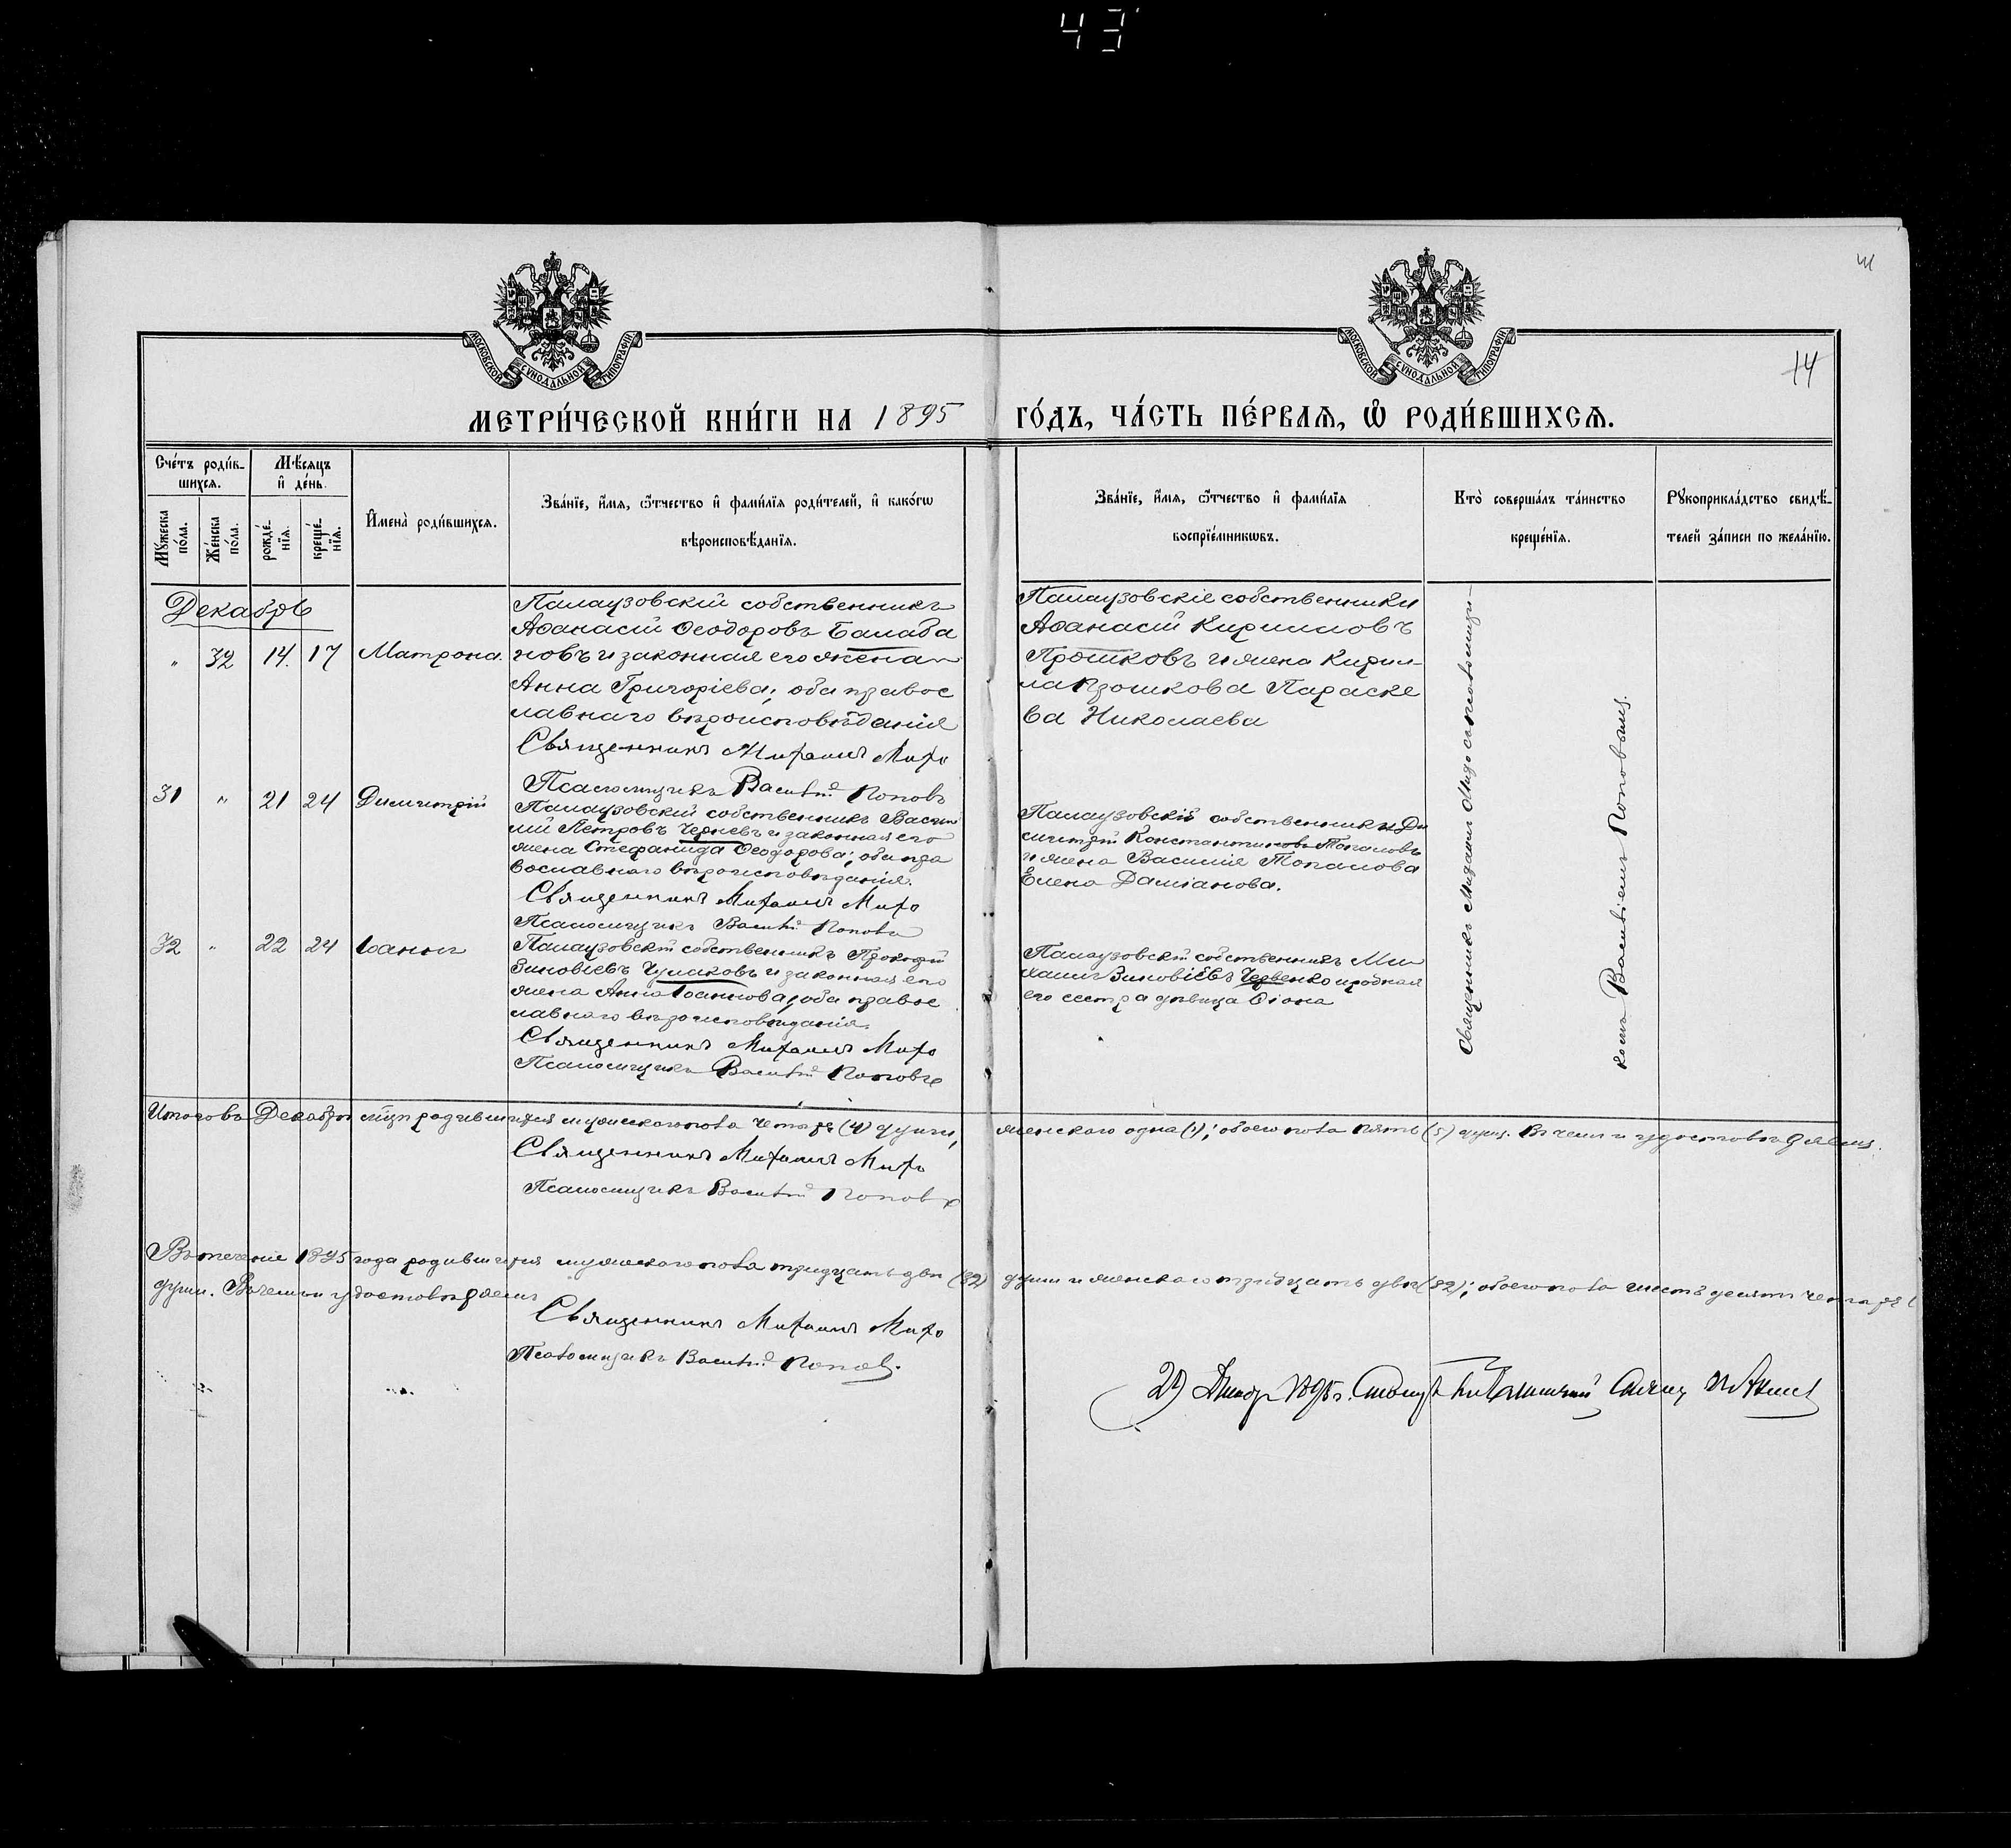 43
14
МОСКОВСКОЙ СѴНОДАЛЬНОЙ ТИПОГРАФІИ
МОСКОВСКОЙ СѴНОДАЛЬНОЙ ТИПОГРАФІИ
МЕТРИ́ЧЕСКОЙ КНИ́ГИ НА 1895 ГО́ДЪ, ЧА́СТЬ ПЕ́РВАѦ, Ѡ҆ РОДИ́ВШИХСѦ.
Сче́тъ роди́в-
шихсѧ.
Мꙋ́жеска
по́ла.
Же́нска
по́ла.
Мѣ́сѧцъ
и҆ де́нь.
рожде́-
нїѧ.
креще́-
нїѧ.
И҆мена̀ роди́вшихсѧ.
Зва́нїе, и҆́мѧ, ѻ҆́тчество и҆ фамі́лїѧ роди́телей, и҆ како́гѡ
вѣроисповѣ́данїѧ.
Зва́нїе, и҆́мѧ, ѻ҆́тчество и҆ фамі́лїѧ
воспрїе́мникѡвъ.
Кто̀ соверша́лъ та́инство
креще́нїѧ.
Рꙋкоприкла́дство свидѣ́-
телей за́писи по жела́нїю.
Декабрь
" 32 14. 17 Матрона.
Палаузовскій собственникъ
Аѳанасій Ѳеодоровъ Балаба
новъ и законная его жена
Анна Григоріева; оба правос
лавнаго вѣроисповѣданія
Священникъ Михаилъ Михо
Псаломщикъ Василій Поповъ
Палаузовскіе собственники
Аѳанасій Кирилловъ
Прошковъ и жена Кирил-
ла Прошкова Параске
ва Николаева
31 " 21 24 Димитрій
Палаузовскій собственникъ Васи
лій Петровъ Черневъ и законная его
жена Стефанида Ѳеодорова; оба пра
вославнаго вѣроисповѣданія.
Священникъ Михаилъ Михо
Псаломщикъ Василій Поповъ
Палаузовскій собственники Ди
митрій Константиновъ Топаловъ
и жена Василія Топалова
Елена Даміанова.
32 " 22 24 Іоаннъ
Палаузовскій собственникъ Прокофій
Зиновіевъ Чумаковъ и законная его
жена Анна Іоаннова; оба правос
лавнаго вѣроисповѣданія.
Священникъ Михаилъ Михо
Псаломщикъ Василій Поповъ
Палаузовскій собственникъ Ми
хаилъ Зиновіевъ Червенко и родная
его сестра дѣвица
Священникъ Михаилъ Михо съ псаломщи-
комъ Василіемъ Поповымъ.
Итого въ Декабрѣ мцѣ родившихся мужескаго пола четыре (4) души, женскаго одна (1); обоего пола пять (5) душъ. Въ чемъ и удостовѣряемъ.
Священникъ Михаилъ Михо
Псаломщикъ Василій Поповъ
Въ теченіе 1895 года родившихся мужескаго пола тридцать двѣ (32) души и женскаго тридцать двѣ (32); обоего пола шестьдесятъ четыре (
души. Въ чемъ и удостовѣряемъ
Священникъ Михаилъ Михо
Псаломщикъ Василій Поповъ.